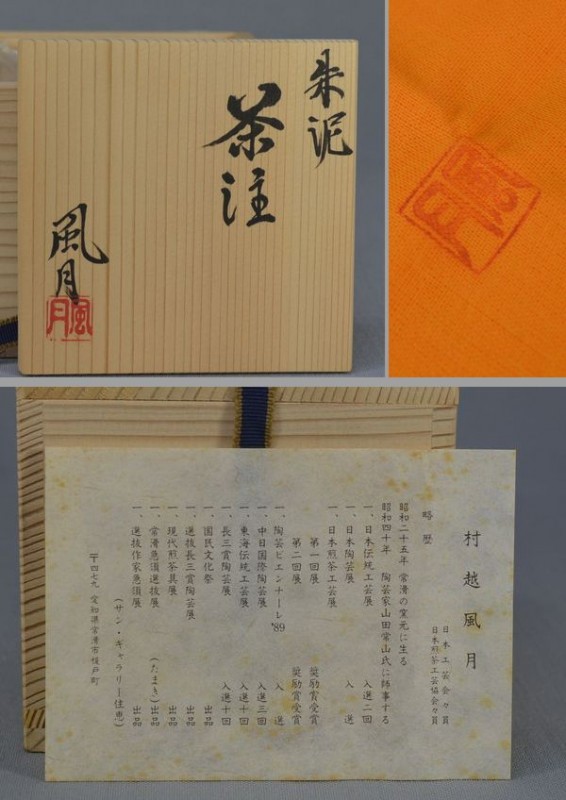 朱泥
茶注
風月
風月
村越風月
日本工芸会々員
日本煎茶工芸協会々員
略歴
昭和二十五年 常滑の窯元に生る
昭和四十年 陶芸家山田常山氏に師事する
一、日本伝統工芸展 入選二回
一、日本陶芸展 入選
一、日本煎茶工芸展
第一回展 奨励賞受賞
第二回展 奨励賞受賞
一、陶芸ビエンナーレ'89 入選
一、中日国際陶芸展 入選三回
一、東海伝統工芸展 入選十回
一、長三賞陶芸展 入選十回
一、国民文化祭 出品
一、選抜長三賞陶芸展 出品
一、現代煎茶具展 出品
一、常滑急須選抜展 (たまき) 出品
一、選抜作家急須展 (サン・ギャラリー住恵) 出品
〒四七九 愛知県常滑市檜戸町